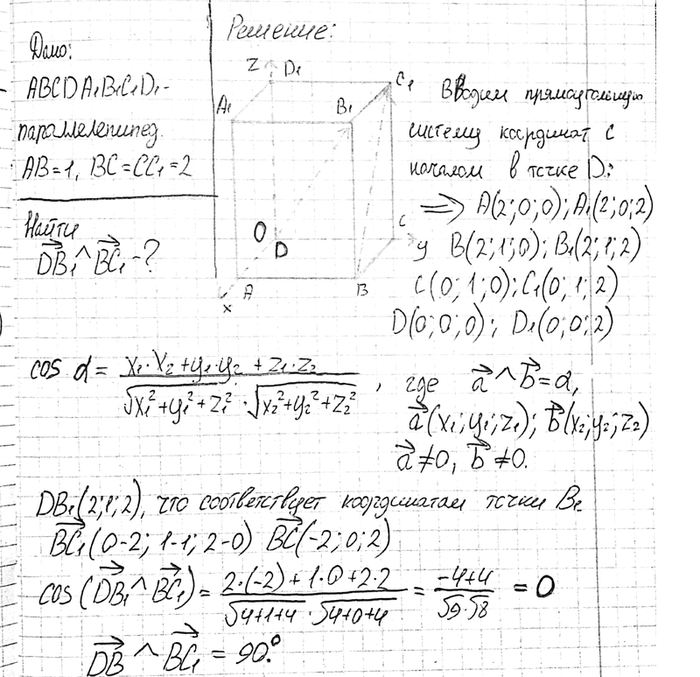 Дано:
ABCDA₁B₁C₁D₁-
параллелепипед.
AB=1, BC=CC₁=2
Найти
$\overrightarrow{DB_1}$ ^ $\overrightarrow{BC_1}$ -?
Решение:
Z D₁ C₁
A₁ B₁
O D C y
x A B
Вводим прямоугольную
систему координат с
началом в точке D:
⟹ A(2;0;0); A₁(2;0;2)
B(2;1;0); B₁(2;1;2)
C(0;1;0); C₁(0;1;2)
D(0;0;0); D₁(0;0;2)
cos α = $\frac{x_1 \cdot x_2 + y_1 \cdot y_2 + z_1 \cdot z_2}{\sqrt{x_1^2+y_1^2+z_1^2} \cdot \sqrt{x_2^2+y_2^2+z_2^2}}$, где $\vec{a}$ ^ $\vec{b}$ = α,
$\vec{a}$(x₁;y₁;z₁); $\vec{b}$(x₂;y₂;z₂)
$\vec{a}$ ≠0, $\vec{b}$ ≠0.
DB₁(2;1;2), что соответствует координатам точки B₁.
$\overrightarrow{BC_1}$(0-2; 1-1; 2-0) $\overrightarrow{BC}$(-2; 0; 2)
cos($\overrightarrow{DB_1}$ ^ $\overrightarrow{BC_1}$) = $\frac{2 \cdot (-2) + 1 \cdot 0 + 2 \cdot 2}{\sqrt{4+1+4} \cdot \sqrt{4+0+4}}$ = $\frac{-4+4}{\sqrt{9} \cdot \sqrt{8}}$ = 0
$\overrightarrow{DB}$ ^ $\overrightarrow{BC_1}$ = 90°.